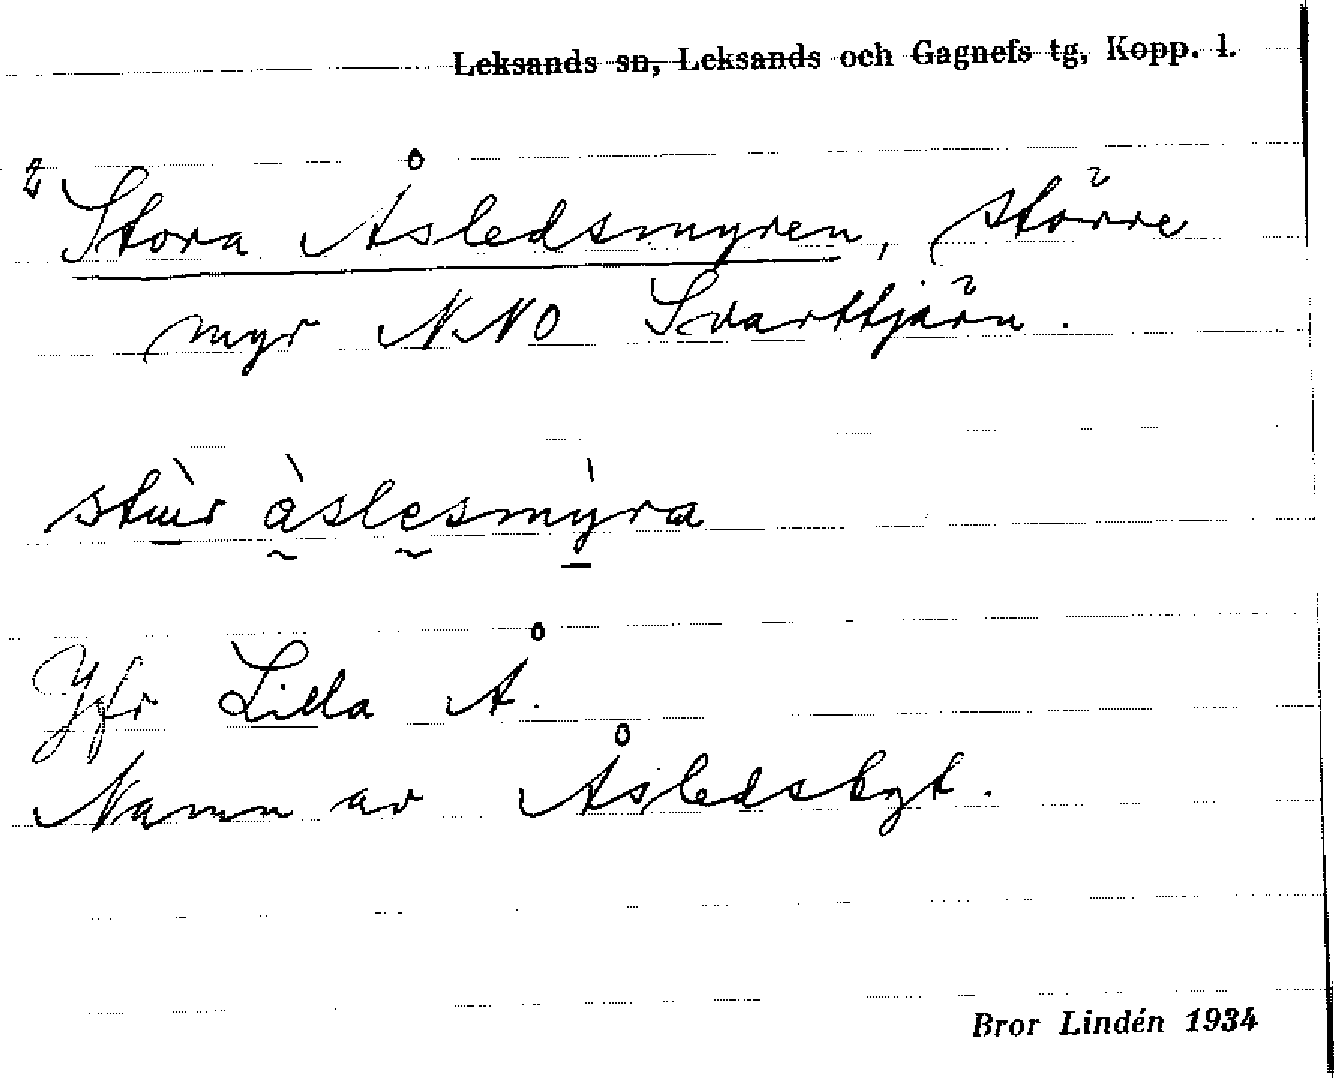 Leksands sn, Leksands och Gagnefs tg, Kopp. l.
Stora Åsledsmyren, större
myr NNO Svarttjärn.
stùr àslesmỳra
Jfr Lilla Å.
Namn av Åsledsbgt.
Bror Lindén 1934